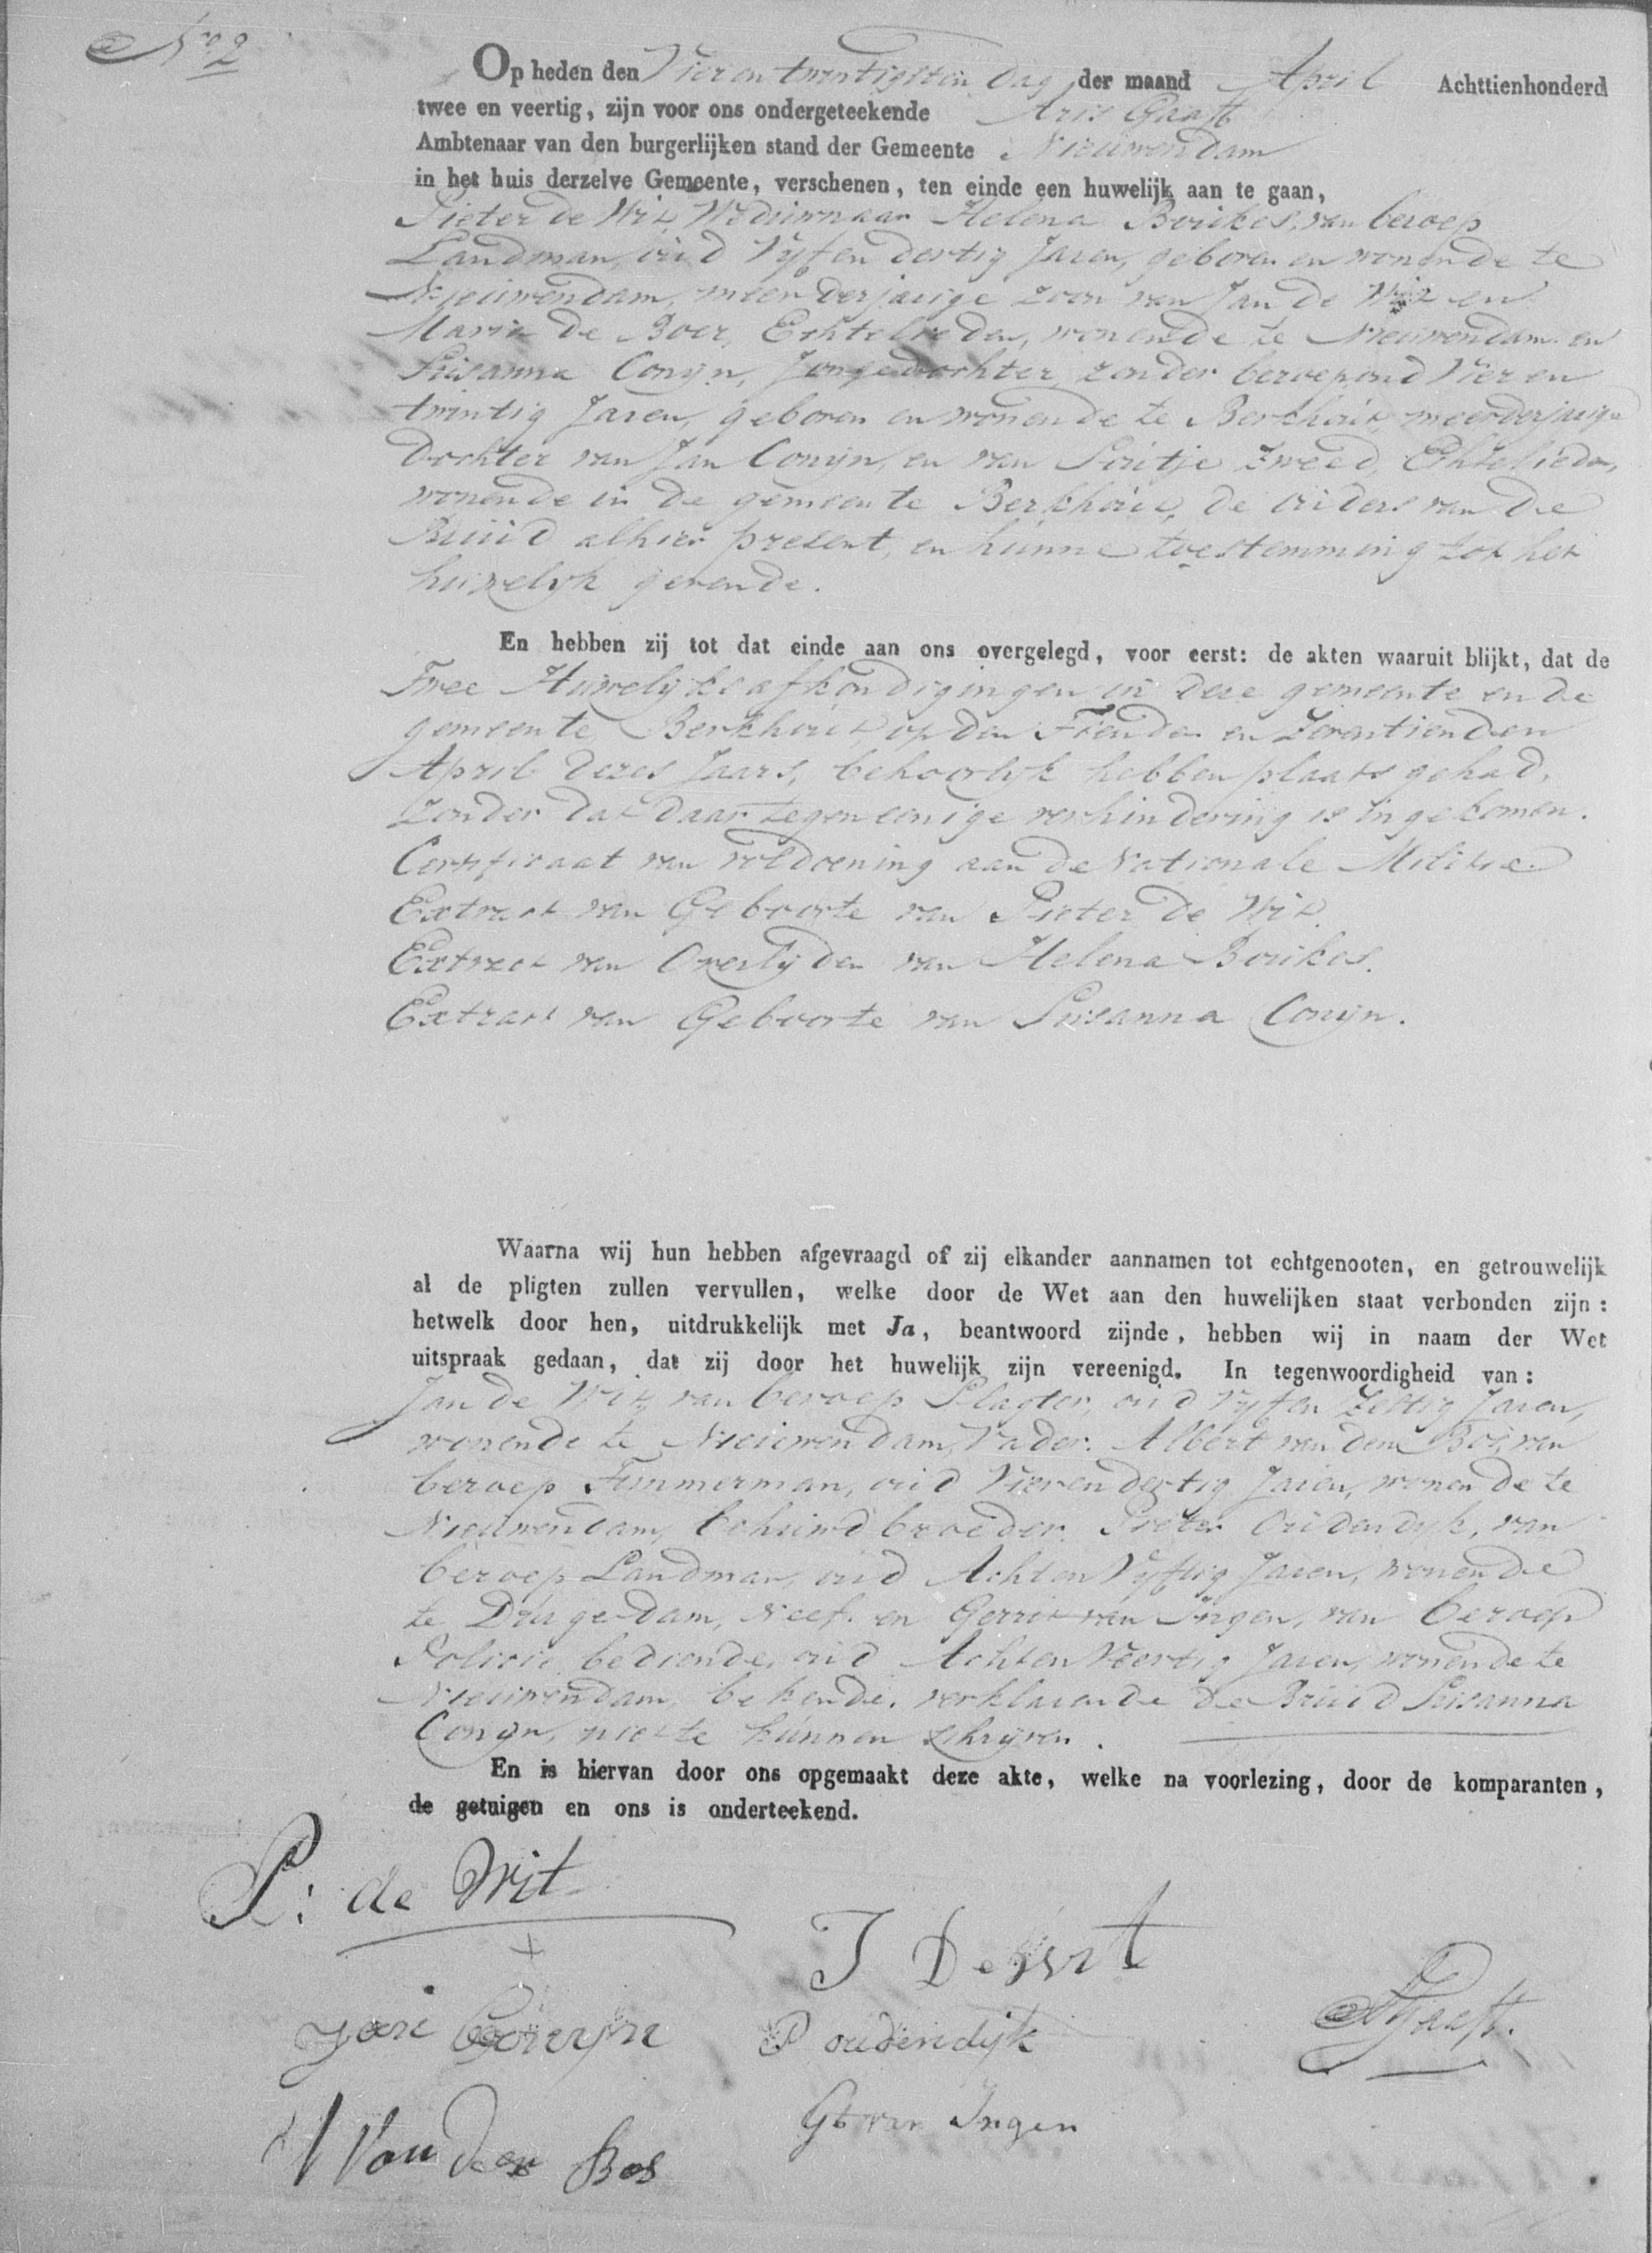 No 2
Op heden den Vier en twintigsten Dag der maand April Achttienhonderd
twee en veertig, zijn voor ons ondergeteekende Aris Gaaft
Ambtenaar van den burgerlijken stand der Gemeente Nieuwendam
in het huis derzelve Gemeente, verschenen, ten einde een huwelijk aan te gaan,
Pieter de Wit, Weduwnaar Helena Boukes, van beroep
Landman, oud Vyf en dertig Jaren, geboren en wonende te
Nieuwendam, meerderjarige zoon van Jan de Wit en
Maria de Boer, Echtelieden, wonende te Nieuwendam en
Susanna Conyn, Jongedochter, zonder beroep oud Vier en
twintig Jaren, geboren en wonende te Berkhout, meerderjarige
Dochter van Jan Conijn, en van Sijtje Zweed, Echtelieden,
wonende in de gemeente Berkhout, de ouders van de
Bruid alhier present, en hunne toestemming tot het
huwelyk gevende.
En hebben zij tot dat einde aan ons overgelegd, voor eerst: de akten waaruit blijkt, dat de
Twee Huwelyks afkondigingen in deze gemeente en de
gemeente Berkhout, op den Tienden en Zeventienden
April dezes Jaars, behoorlyk hebben plaats gehad,
zonder dat daar tegen eenige verhindering is ingekomen.
Certificaat van voldoening aan de Nationale Militie
Extract van Geboorte van Pieter de Wit.
Extract van Overlyden van Helena Boukes.
Extract van Geboorte van Susanna Conyn.
Waarna wij hun hebben afgevraagd of zij elkander aannamen tot echtgenooten, en getrouwelijk
al de pligten zullen vervullen, welke door de Wet aan den huwelijken staat verbonden zijn:
hetwelk door hen, uitdrukkelijk met Ja, beantwoord zijnde, hebben wij in naam der Wet
uitspraak gedaan, dat zij door het huwelijk zijn vereenigd. In tegenwoordigheid van:
Jan de Wit, van beroep Slagter, oud Vyf en Zestig Jaren,
wonende te Nieuwendam, Vader. Albert van den Bos, van
beroep Timmerman, oud Vier en dertig Jaren, wonende te
Nieuwendam, behuwd broeder. Pieter Oudendyk, van
beroep Landman, oud Acht en Vyftig Jaren, wonende
te Durgerdam, Neef. en Gerrit van Ingen, van beroep
Policie bediende, oud Acht en Veertig Jaren, wonende te
Nieuwendam, bekende. verklarende de Bruid Susanna
Conyn, niet te kunnen schryven.
En is hiervan door ons opgemaakt deze akte, welke na voorlezing, door de komparanten,
de getuigen en ons is onderteekend.
P: de Wit
+
J De Wit
Jan Conijn
P oudendijk
A Gaaft.
A Van den Bos
Gt van Ingen